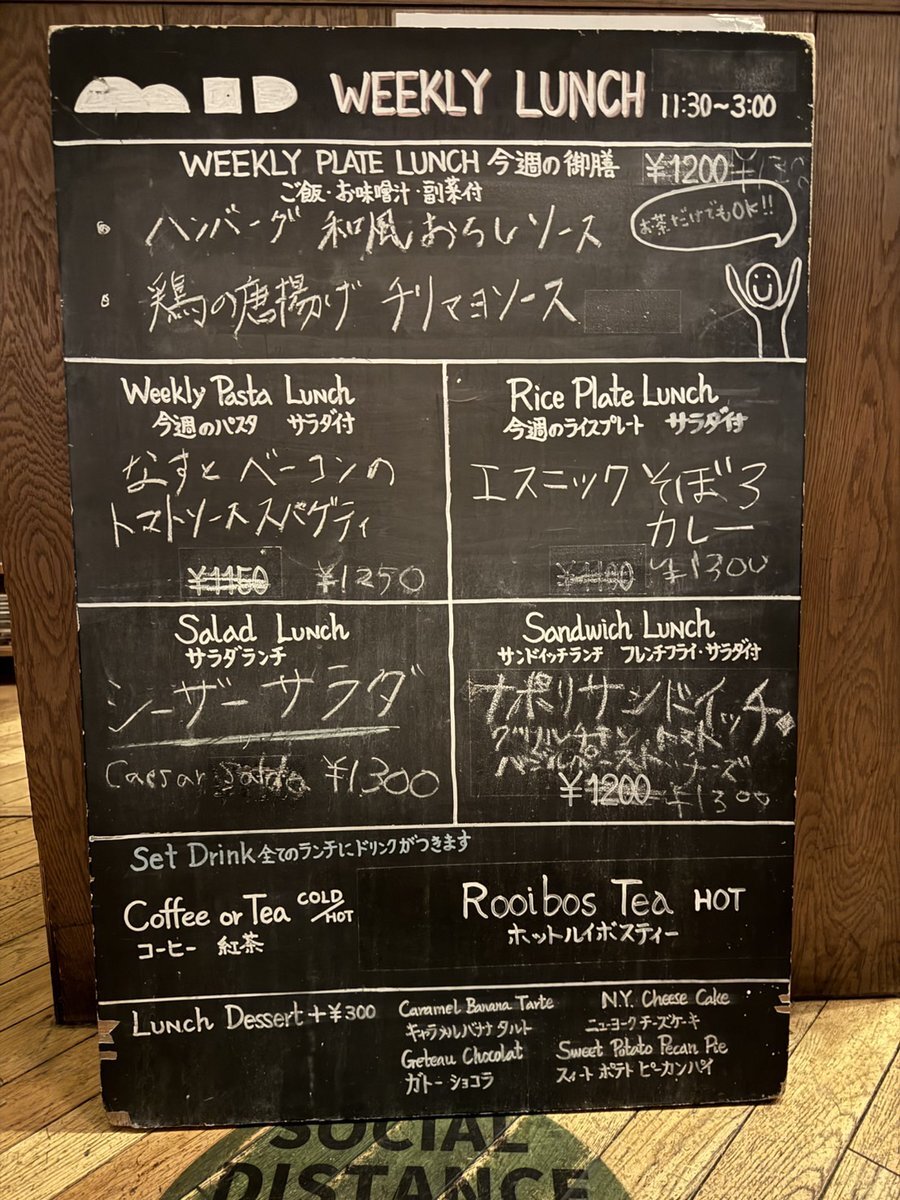 WEEKLY LUNCH 11:30~3:00
WEEKLY PLATE LUNCH 今週の御膳 ¥1200
ご飯・お味噌汁・副菜付
ハンバーグ 和風おろしソース
お茶だけでもOK!!
鶏の唐揚げ チリマヨソース
Weekly Pasta Lunch
今週のパスタ サラダ付
なすとベーコンの
トマトソーススパゲティ
¥1150 ¥1250
Rice Plate Lunch
今週のライスプレート サラダ付
エスニックそぼろ
カレー
¥1100 ¥1300
Salad Lunch
サラダランチ
シーザーサラダ
Caesar ¥1300
Sandwich Lunch
サンドイッチランチ フレンチフライ・サラダ付
ナポリサンドイッチ
グリルチキン トマト
バジルペースト チーズ
¥1200 ¥1300
Set Drink 全てのランチにドリンクがつきます
Coffee or Tea COLD/HOT
コーヒー 紅茶
Rooibos Tea HOT
ホットルイボスティー
Lunch Dessert +¥300
Caramel Banana Tarte
キャラメルバナナタルト
N.Y. Cheese Cake
ニューヨークチーズケーキ
Geteau Chocolat
ガトーショコラ
Sweet Potato Pecan Pie
スィートポテトピーカンパイ
SOCIAL
DISTANCE